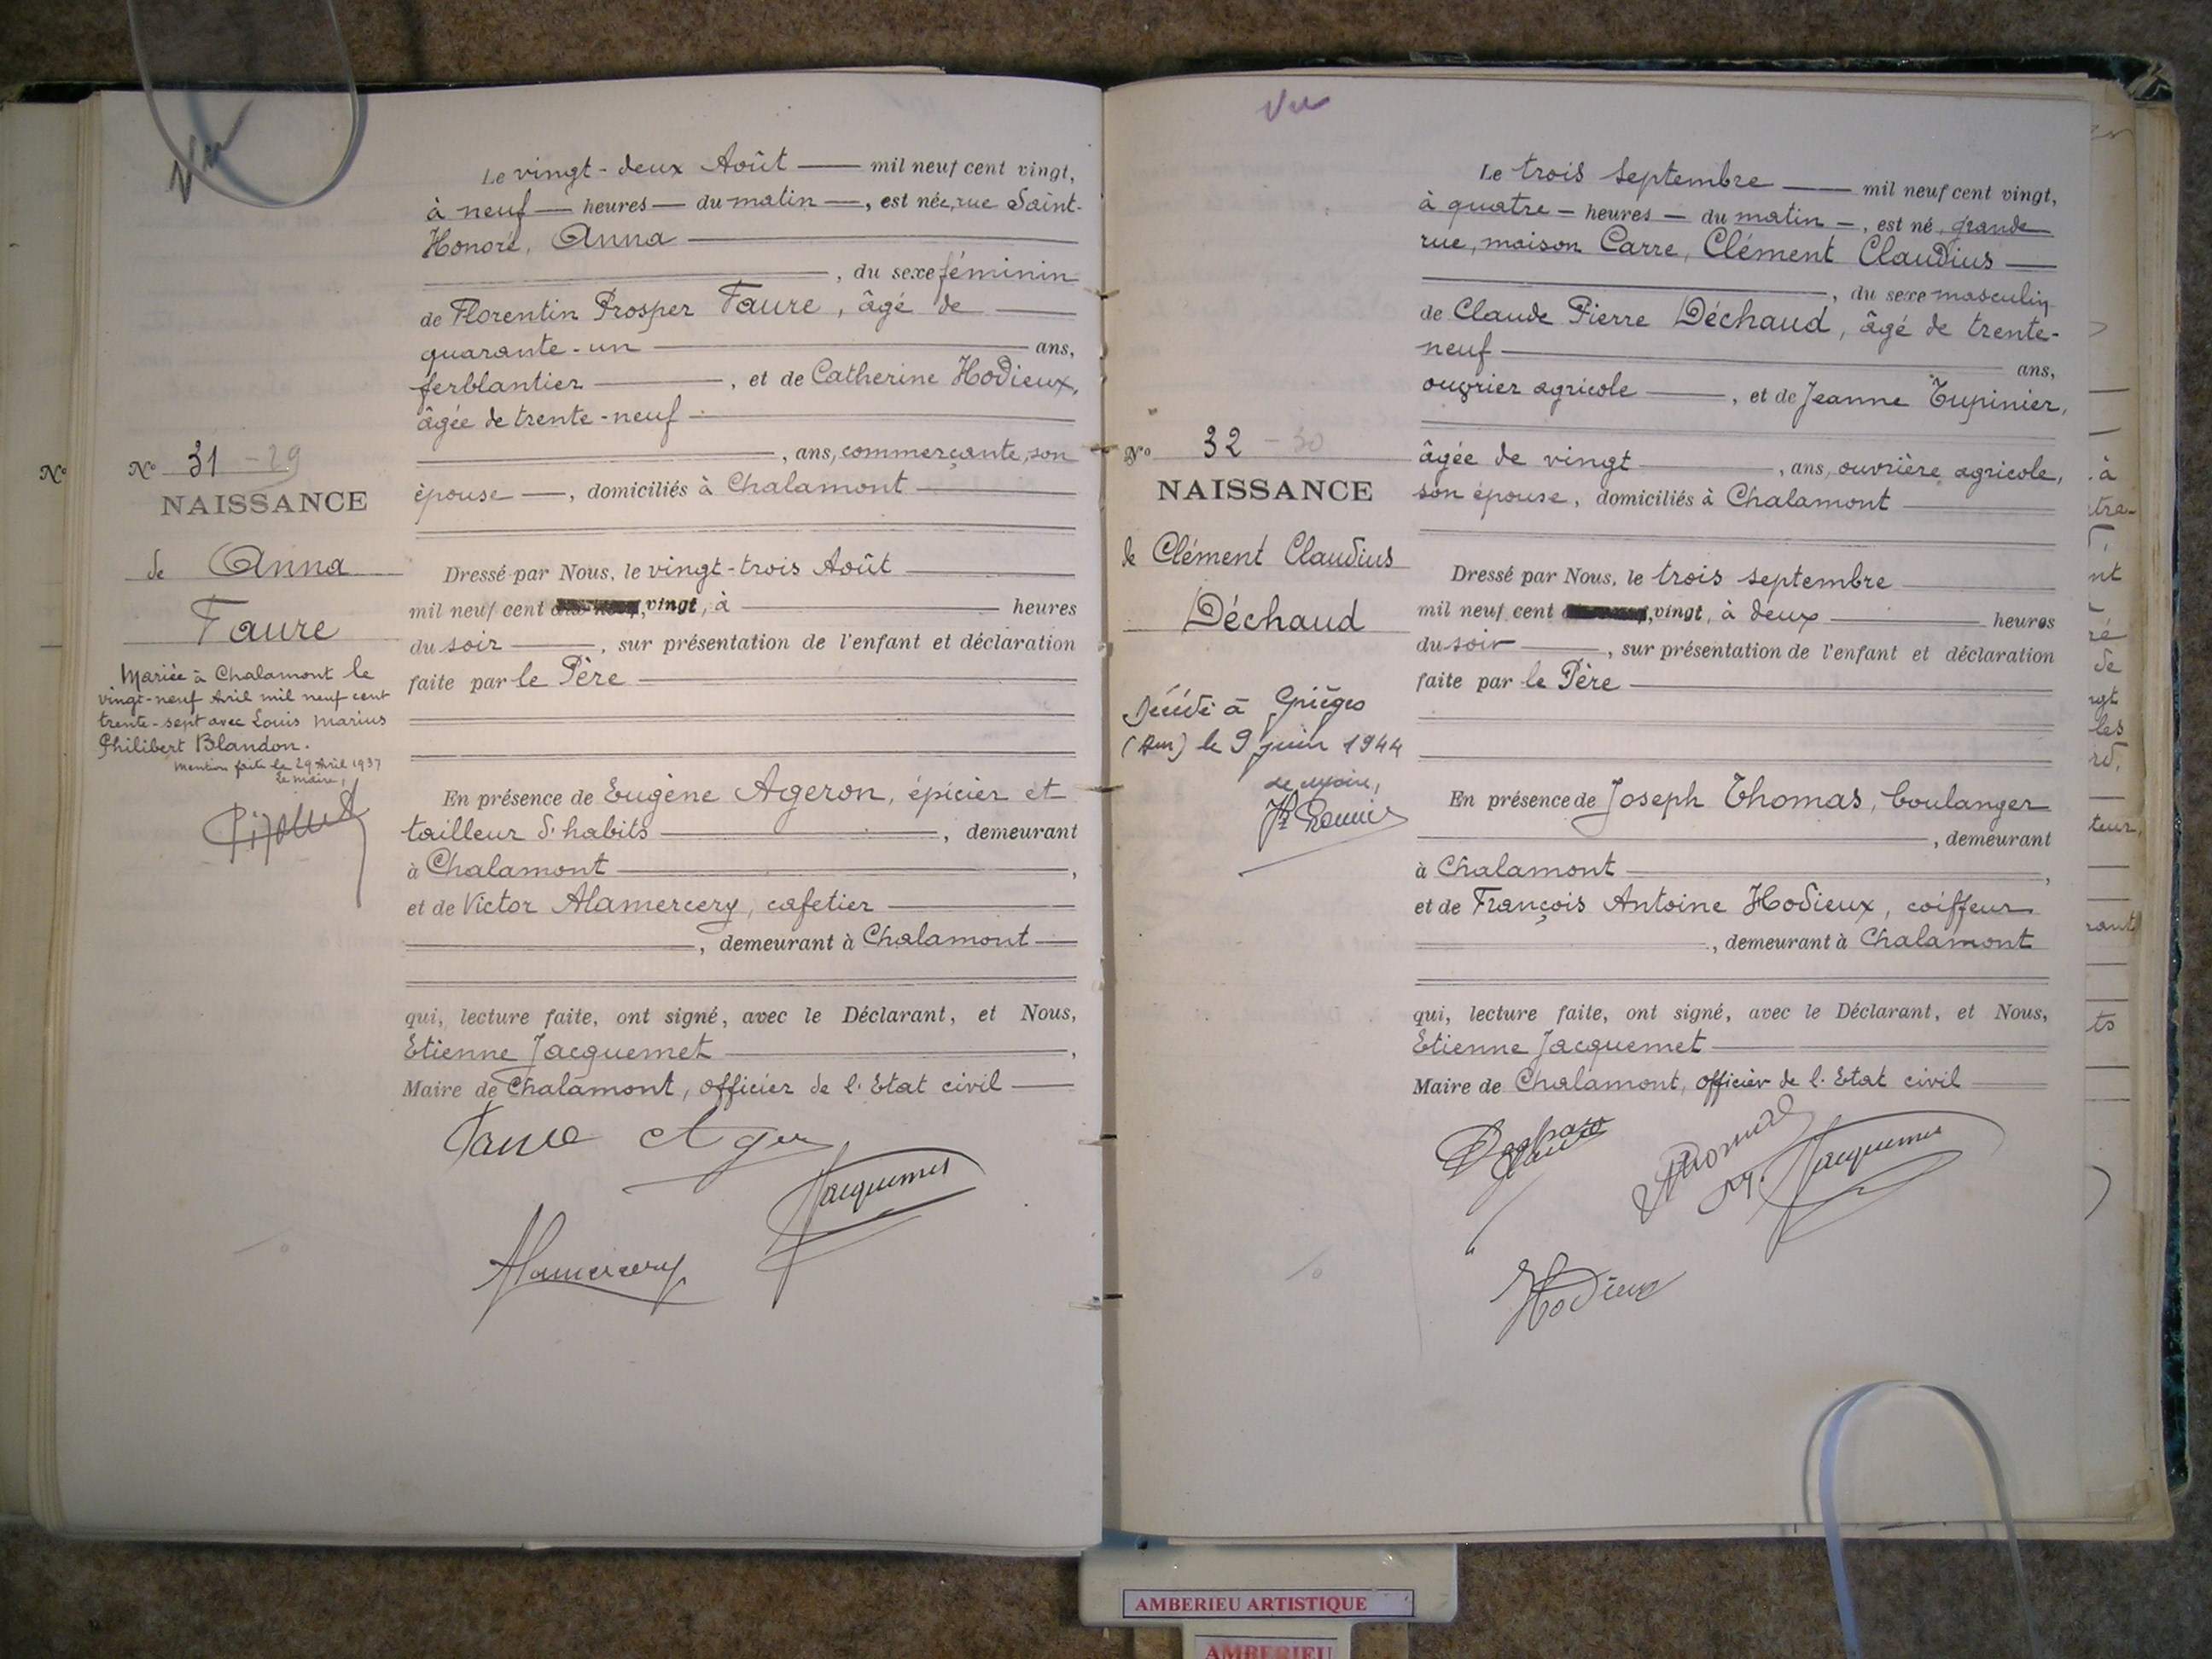 Vu
Le vingt-deux Août — mil neuf cent vingt,
à neuf — heures — du matin —, est née, rue Saint-
Honoré, Anna
, du sexe féminin
de Florentin Prosper Faure, âgé de
quarante-un ans,
ferblantier, et de Catherine Hodieux,
âgée de trente-neuf
, ans, commerçante, son
épouse —, domiciliés à Chalamont
Nº
Nº 31 - 29
NAISSANCE
de Anna
Faure
Mariée à Chalamont le
vingt-neuf Avril mil neuf cent
trente-sept avec Louis Marius
Philibert Blandon.
Mention faite le 29 Avril 1937
Le maire,
Dressé par Nous, le vingt-trois Août
mil neuf cent vingt, à heures
du soir, sur présentation de l'enfant et déclaration
faite par le Père
En présence de Eugène Ageron, épicier et
tailleur d'habits, demeurant
à Chalamont,
et de Victor Alamercery, cafetier
, demeurant à Chalamont
qui, lecture faite, ont signé, avec le Déclarant, et Nous,
Etienne Jacquemet,
Maire de Chalamont, officier de l'Etat civil
Faure Ager
Jacquemet
Alamercery
Vu
Le trois septembre — mil neuf cent vingt,
à quatre — heures — du matin —, est né, grande
rue, maison Carre, Clément Claudius
, du sexe masculin
de Claude Pierre Déchaud, âgé de trente-
neuf ans,
ouvrier agricole, et de Jeanne Tupinier,
âgée de vingt, ans, ouvrière agricole,
son épouse, domiciliés à Chalamont
Nº 32 - 30
NAISSANCE
de Clément Claudius
Déchaud
Décédé à Grièges
(Ain) le 9 juin 1944
Le Maire,
Dressé par Nous, le trois septembre
mil neuf cent vingt, à deux heures
du soir, sur présentation de l'enfant et déclaration
faite par le Père
En présence de Joseph Thomas, boulanger
, demeurant
à Chalamont,
et de François Antoine Hodieux, coiffeur
, demeurant à Chalamont
qui, lecture faite, ont signé, avec le Déclarant, et Nous,
Etienne Jacquemet
Maire de Chalamont, officier de l'Etat civil
Jacquemet
Hodieux
AMBERIEU ARTISTIQUE
AMBERIEU